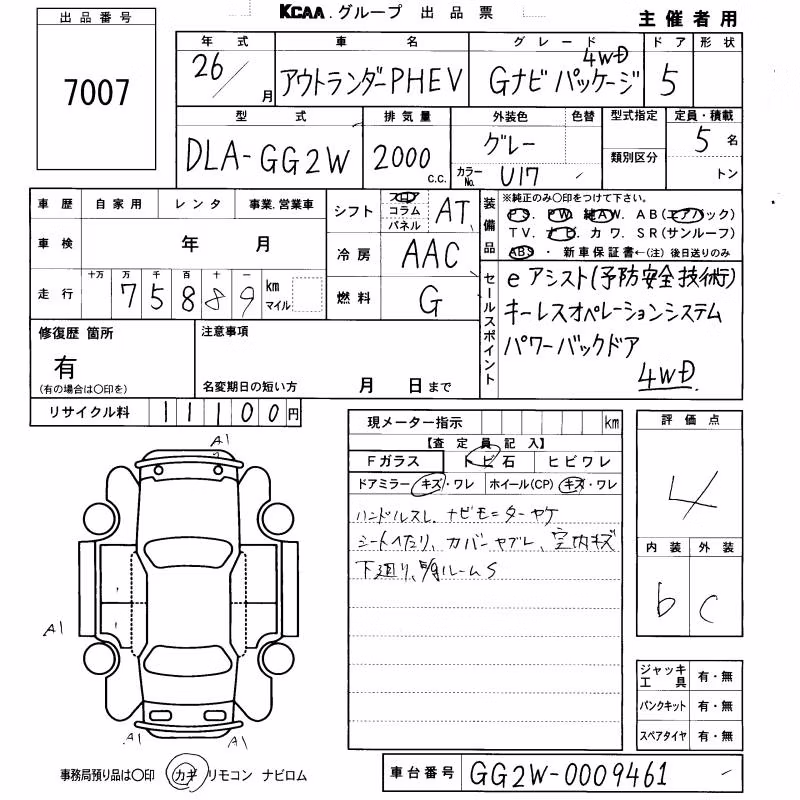 KCAA.グループ 出品票
主催者用
出品番号
7007
年式 車名 グレード ドア 形状
26/ 月 アウトランダーPHEV Gナビパッケージ 4WD 5
型式 排気量 外装色 色替 型式指定 定員・積載
DLA-GG2W 2000 c.c. グレー 類別区分 5 名
カラーNo. U17 トン
車歴 自家用 レンタ 事業.営業車
車検 年 月
走行 十万 万 千 百 十 一
75889 km マイル
シフト フロア コラム パネル AT
冷房 AAC
燃料 G
装備品
※純正のみ〇印をつけて下さい。
PS. PW. 純AW. AB(エアバック)
TV. ナビ. カワ. SR(サンルーフ)
ABS. 新車保証書←(注) 後日送りのみ
セールスポイント
eアシスト(予防安全技術)
キーレスオペレーションシステム
パワーバックドア
4WD.
修復歴 箇所
有
(有の場合は〇印を)
注意事項
名変期日の短い方 月 日まで
リサイクル料 11100円
現メーター指示 km
【査定員記入】
Fガラス トビ石 ヒビワレ
ドアミラー キズ・ワレ ホイール(CP) キズ・ワレ
ハンドルスレ. ナビモニターヤケ
シートヘたり、カバーヤブレ、室内キズ
下廻り、ルームS
評価点
4
内装 外装
b C
ジャッキ工具 有・無
パンクキット 有・無
スペアタイヤ 有・無
A1
A1
A1
A1
A1
事務局預り品は〇印 カギ リモコン ナビロム
車台番号 GG2W-0009461